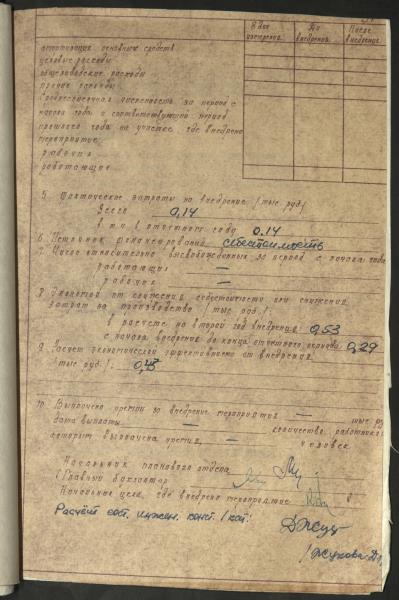 В год внедрения
До внедрения
После внедрения
амортизация основных средств
цеховые расходы
общезаводские расходы
прочие расходы
Среднесписочная численность за период с
начала года и соответствующий период
прошлого года на участке, где внедрено
мероприятие:
рабочих
работающих
5. Фактические затраты на внедрение /тыс. руб/
Всего 0,14
в т.ч. в отчетном году 0.14
6. Источник финансирования себестоимость
7. Число относительно высвобожденных за период с начала года
работающих —
рабочих —
8. Экономия от снижения себестоимости или снижения
затрат на производство /тыс. руб./:
в расчете на второй год внедрения 0,53
с начала внедрения до конца отчетного периода 0,29
9. Расчет экономической эффективности от внедрения
/тыс. руб./: 0,43
10. Выплачено премии за внедрение мероприятия — тыс. ру
Дата выплаты — количество работников
которым выплачена премия, — человек
Начальник планового отдела
Главный бухгалтер
Начальник цеха, где внедрено мероприятие
Расчёт сост. инжен. конст. I кат.
/Жукова